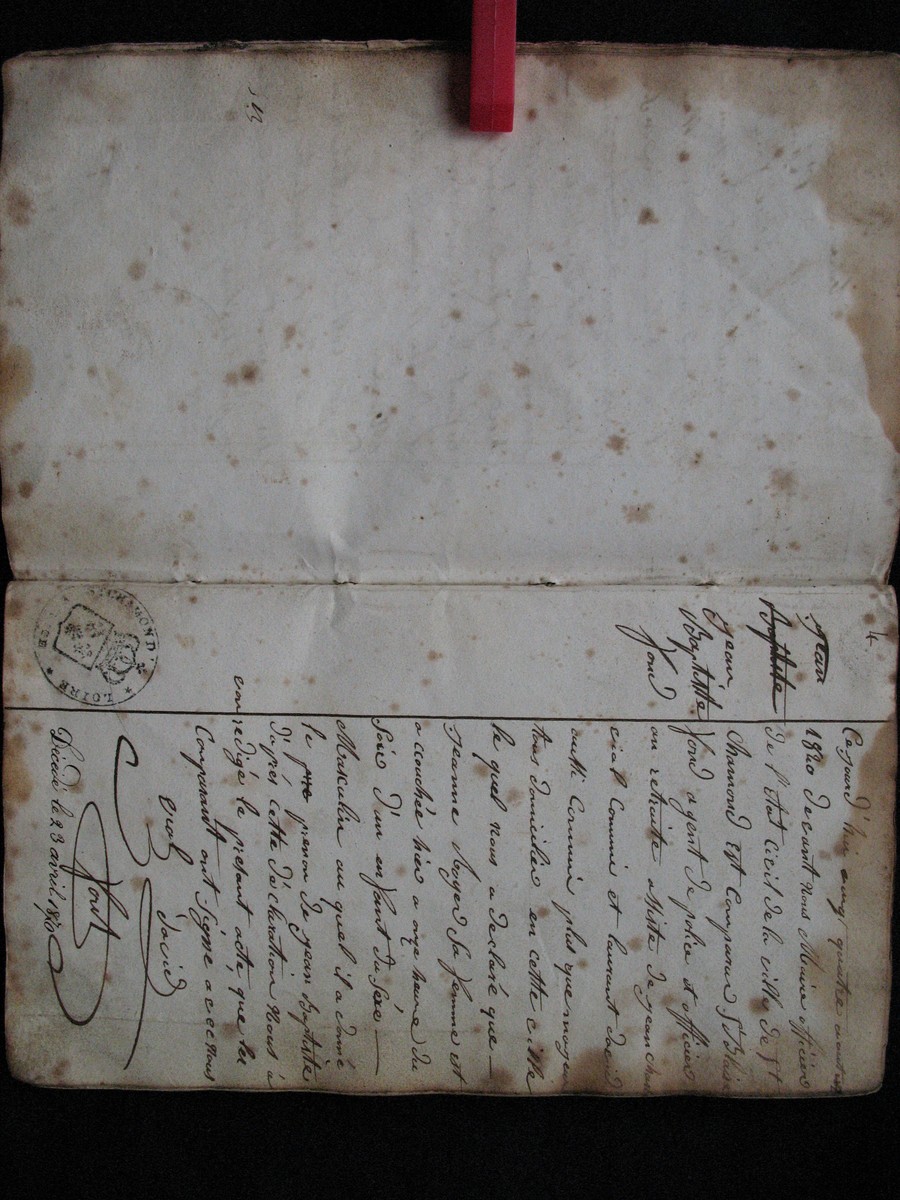 4.
Jean
Baptiste
Jean
Baptiste
Fond
Ce jourd'hui vingt quatre
1820 devant nous Maire officier
de l'état civil de la ville de St
Chamond est Comparu Sr Blaise
Fond agent de police et officier
en retraite assisté de jean
cial Commis et laurent david
aussi Commis plus que majeur
tous domiciliés en cette ville
le quel nous a declaré que
jeanne Royer Sa femme est
accouchée hier a onze heure du
Soir d'un enfant du Sexe
Masculin au quel il a donné
le prenom de jean Baptiste
d'après cette déclaration nous
en redigé le present acte, que les
Comparant ont Signé avec nous
vial david
Fond
Décédé le 23 avril 1820
ST CHAMOND
LOIRE